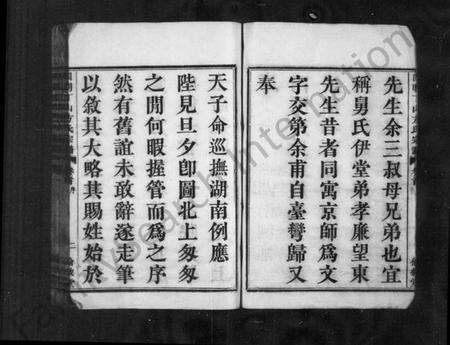 先生余三叔母兄弟也宜
稱舅氏伊堂弟孝廉望東
先生昔者同寓京師為文
字交第余甫自臺灣歸又
奉
天子命巡撫湖南例應
陛見旦夕卽圖北上匆匆
之間何暇握管而為之序
然有舊誼未敢辭遂走筆
以敘其大略其賜姓始於